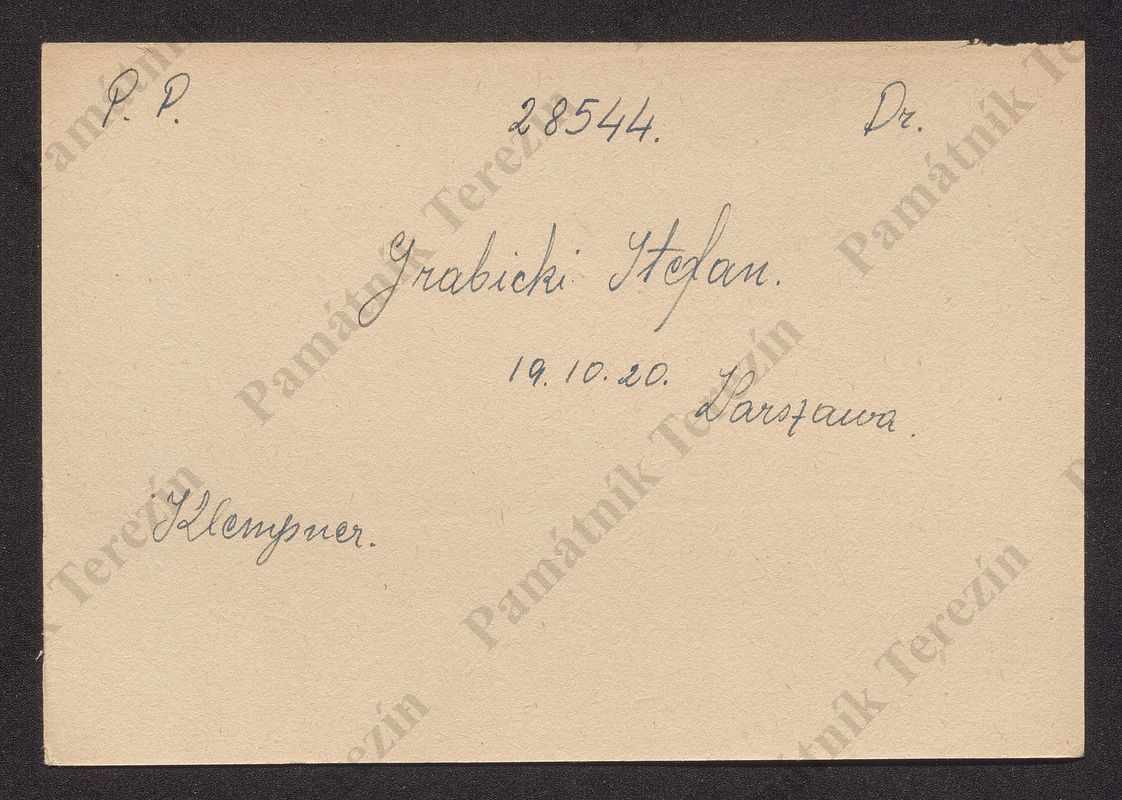 P. P. 28544. Dr.
Grabicki Stefan.
19.10.20.
Warszawa.
Klempner.
Památník Terezín